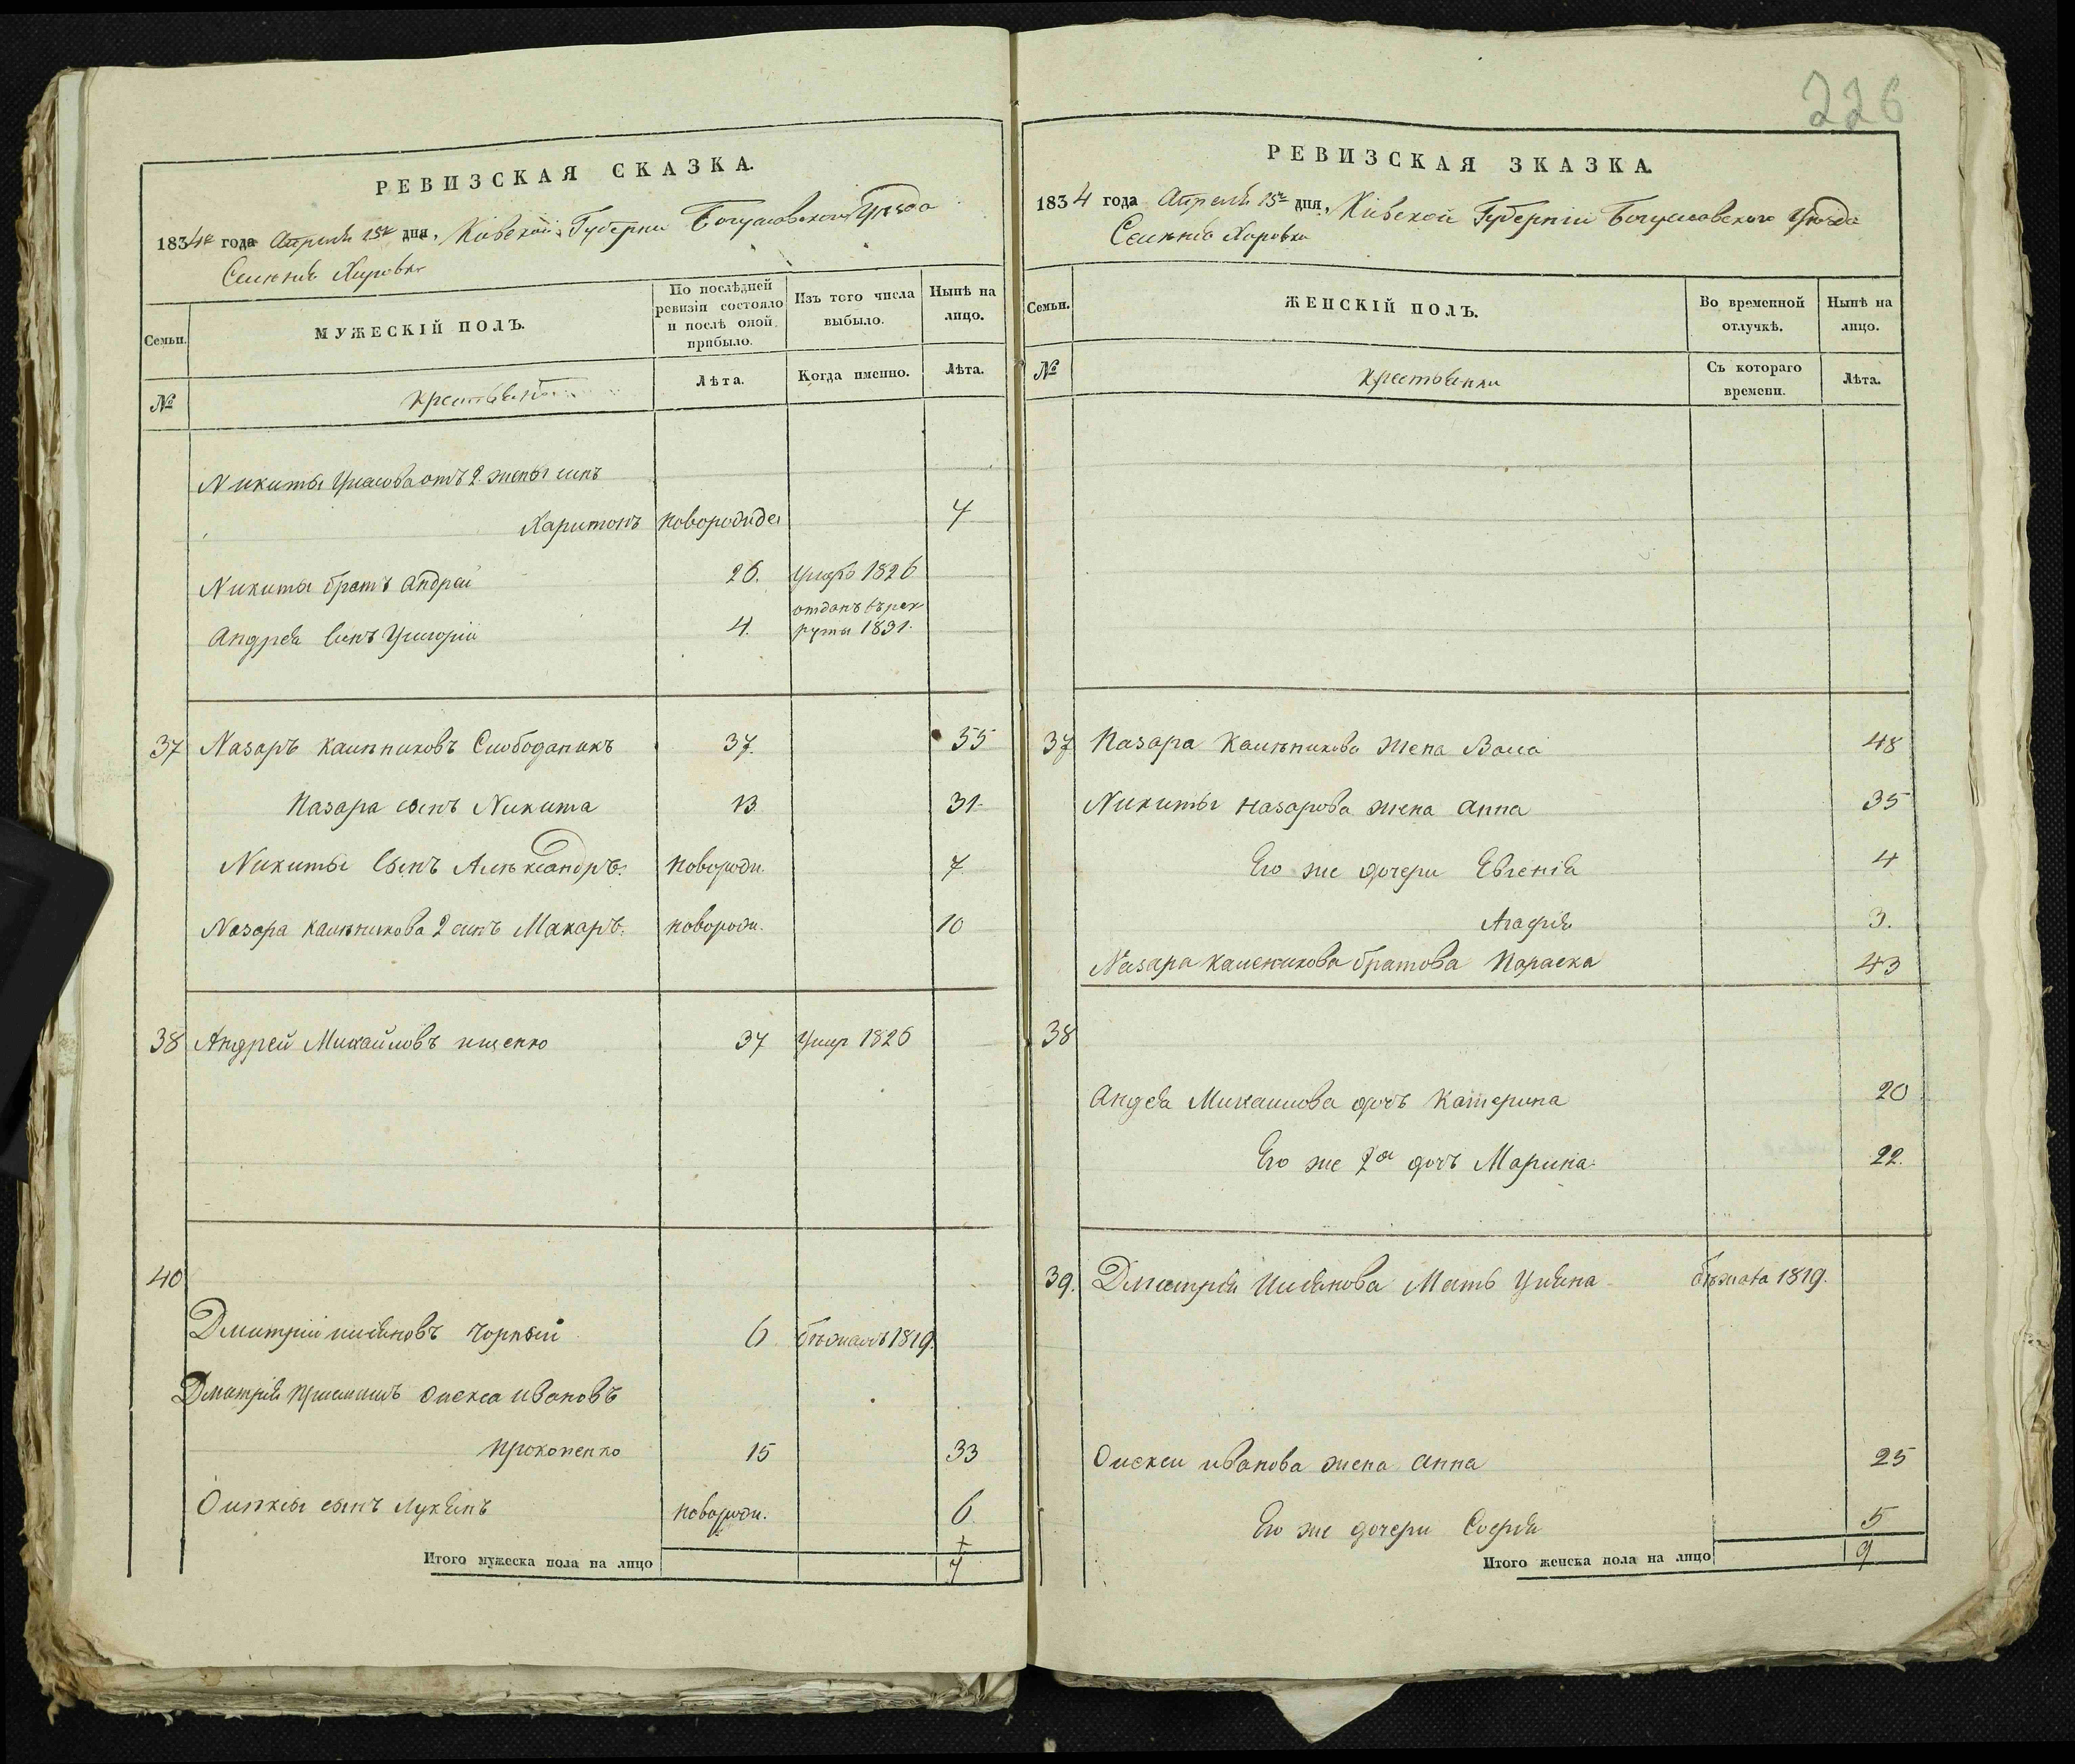 226
РЕВИЗСКАЯ СКАЗКА.
1834го года Апреля 15го дня, Кивской Губерни Богуславского Уезда
Селенія Хировки
Семьи.
МУЖЕСКІЙ ПОЛЪ.
По послѣдней ревизіи состояло и послѣ оной прибыло.
Изъ того числа выбыло.
Нынѣ на лицо.
№
Крестьяне
Лѣта.
Когда именно.
Лѣта.
Никиты отъ 2 жены синъ
Харитонъ новорожде 4
Никиты братъ Андрей 26. 1826
отданъ въ рек
Андрея Синъ Григорій 4. руты 1831.
37 Назаръ Калѣниковъ Слободаникъ 37. 55
Назара сынъ Никита 13 31
Никиты Сынъ Алѣксандръ. новорожд. 7
Назара Калѣникова 2 синъ Макаръ. новорожд. 10
38 Андрей Михайловъ ищенко 37 Умр 1826
40
Дмитрій иліяновъ Чорный 6 бѣжалъ 1819.
Дмитрія Приемишъ Олекса ивановъ
Прокопенко 15 33
Олѣксы сынъ Лукянъ новорожд. 6
Итого мужеска пола на лицо 7
РЕВИЗСКАЯ ЗКАЗКА.
1834 года Апреля 15го дня, Кивской Губерніи Богуславского Уезда
Селѣнія Хировки
Семьи.
ЖЕНСКІЙ ПОЛЪ.
Во временной отлучкѣ.
Нынѣ на лицо.
№
Крестьянки
Съ котораго времени.
Лѣта.
37 Назара Калѣникова жена Васса 48
Никиты Назарова жена Анна 35
Его же дочери Евгенія 4
Агафія 3.
Назара Каленикова братова Параска 43
38
Андея Михаилова дочъ Катерина 20
Его же 2я дочъ Марина 22.
39. Дмитрія Илиянова Мать Уляна бѣжала 1819.
Олекси иванова жена Анна 25
Его же дочери Софія 5
Итого женска пола на лицо 9